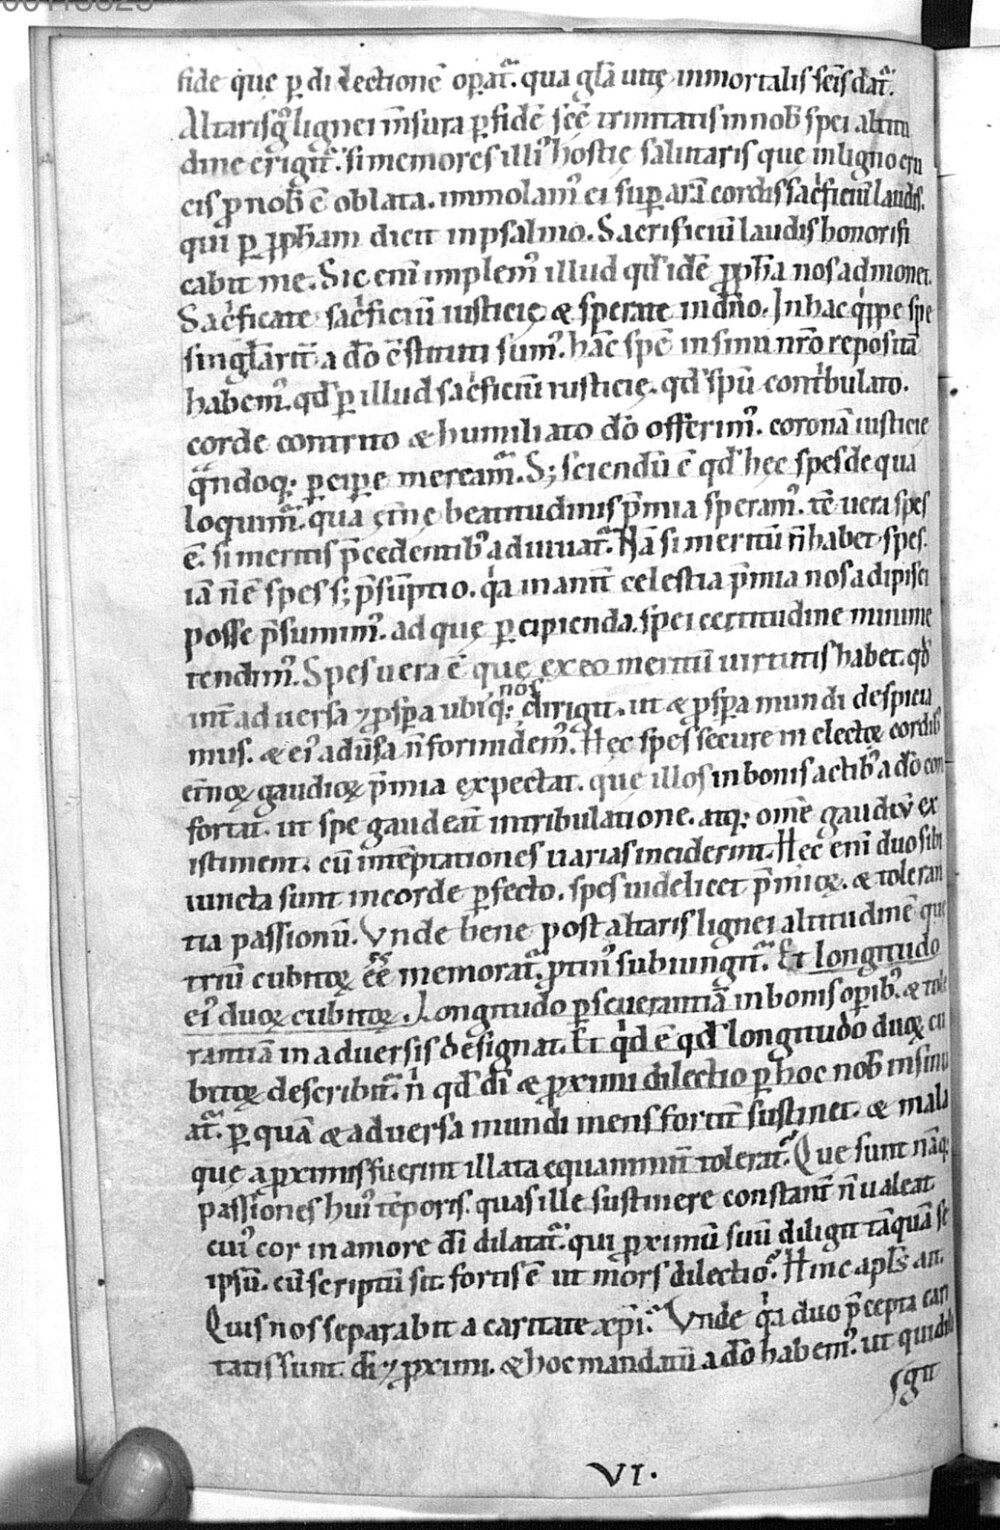 fide que ꝑ dilectionē oꝑat᷑. qua gl̄a uitę inmortalis sc̄is dat᷑.
Altarisq; lignei m̄sura ꝑ fidē sc̄ę trinitatis in nob̄ spei altitu
dine erigit᷑. si memores illiꝰ hostię salutaris que in ligno cru
cis ꝓ nob̄ ē oblata. immolamꝰ ei suꝑ arā cordis sac̓ficiū laudis.
qui ꝑ ꝓph̄am dicit in psalmo. Sacrificiū laudis honorifi
cabit me. Sic eni implemꝰ illud qd̓ idē ꝓph̄a nos admonet.
Sac̓ficate sac̓ficiū iusticię & sperate in dn̄o. In hac qͥppe spe
singl̄arit̄ a dō cstituti sumꝰ. hāc spē in sinu nr̄o repositā
habemꝰ. qd̓ ꝑ illud sac̓ficiū iusticię. qd̓ spū contͥbulato.
corde contrito & humiliato dō offerimꝰ. coronā iusticie
qͣndoq; ꝑciꝑe mereamᷓ. S; sciendū ē qd̓ hęc spes de qua
loquimᷓ. qua ęt̄nę beatitudinis p̄mia speramꝰ. tē uera spes
ē. si meritis p̄cedentibꝰ adiuuat᷑. Nā si meritū n̄ habet spes.
iā n̄ ē spes s; p̄sūptio. qͥa inanit̄ celestia p̄mia nos adipisci
posse p̄sumimꝰ. ad quę ꝑcipienda. spei certitudine minime
tendimꝰ. Spes uera ē quę ex eo meritū uirtutis habet. qd̓
int̄ aduersa ⁊ ꝓsꝑa ubiq; nos dirigit. ut & ꝓsꝑa mundi despicia
mus. & eiꝰ adūsa n̄ formidemꝰ. Hęc spes secure in electoꝝ cordibꝰ
et̄noꝝ gaudioꝝ p̄mia expectat. quę illos in bonis actibꝰ a dō con
fortat. ut spe gaudeant in tribulatione. atq; omē gaudiū ex
istiment. cū in tēptationes uarias inciderint. Hęc eni duo sibi
iuncta sunt in corde ꝑfecto. spes uidelicet p̄mioꝝ. & toleran
tia passionū. Vnde bene post altaris lignei altitudinē que
triū cubitoꝝ ēē memorat᷑. ꝓtinꝰ subiungit᷑. Et longitudo
eiꝰ duoꝝ cubitoꝝ. Longitudo ꝑseuerantiā in bonis oꝑibꝰ. & tole
rantiā in aduersis designat. Et qͥd ē qd̓ longitudo duoꝝ cu
bitoꝝ describit᷑. n̄ qd̓ di & ꝓximi dilectio ꝑ hoc nob̄ insinu
at᷑. ꝑ quā & aduersa mundi mens fortit̄ sustinet. & mala
quę a ꝓximis fuerint illata equanimit̄ tolerat᷑. Que sunt nāq;
passiones huiꝰ tēporis. quas ille sustinere constant̄ n̄ ualeat
cuiꝰ cor in amore di dilatat᷑. qui ꝓximū suū diligit tāquā se
ipsū. cū scriptū sit. fortis ē ut mors dilectio. Hinc apl̄s ait.
Quis nos separabit a caritate xp̄i. Vnde qͥa duo p̄cepta cari
tatis sunt. di ⁊ ꝓximi. & hoc mandatū a dō habemꝰ. ut qui dili
git
VI.